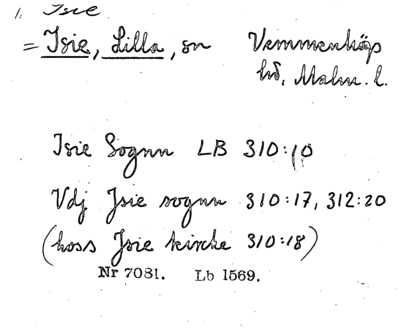 1. Isie
= Isie, Lilla, sn Vemmenhögs
hd, Malm. l.
Isie Sognn LB 310:10
Vdj Jsie sognn 310:17, 312:20
(hoss Jsie kircke 310:18)
Nr 7081. Lb 1569.